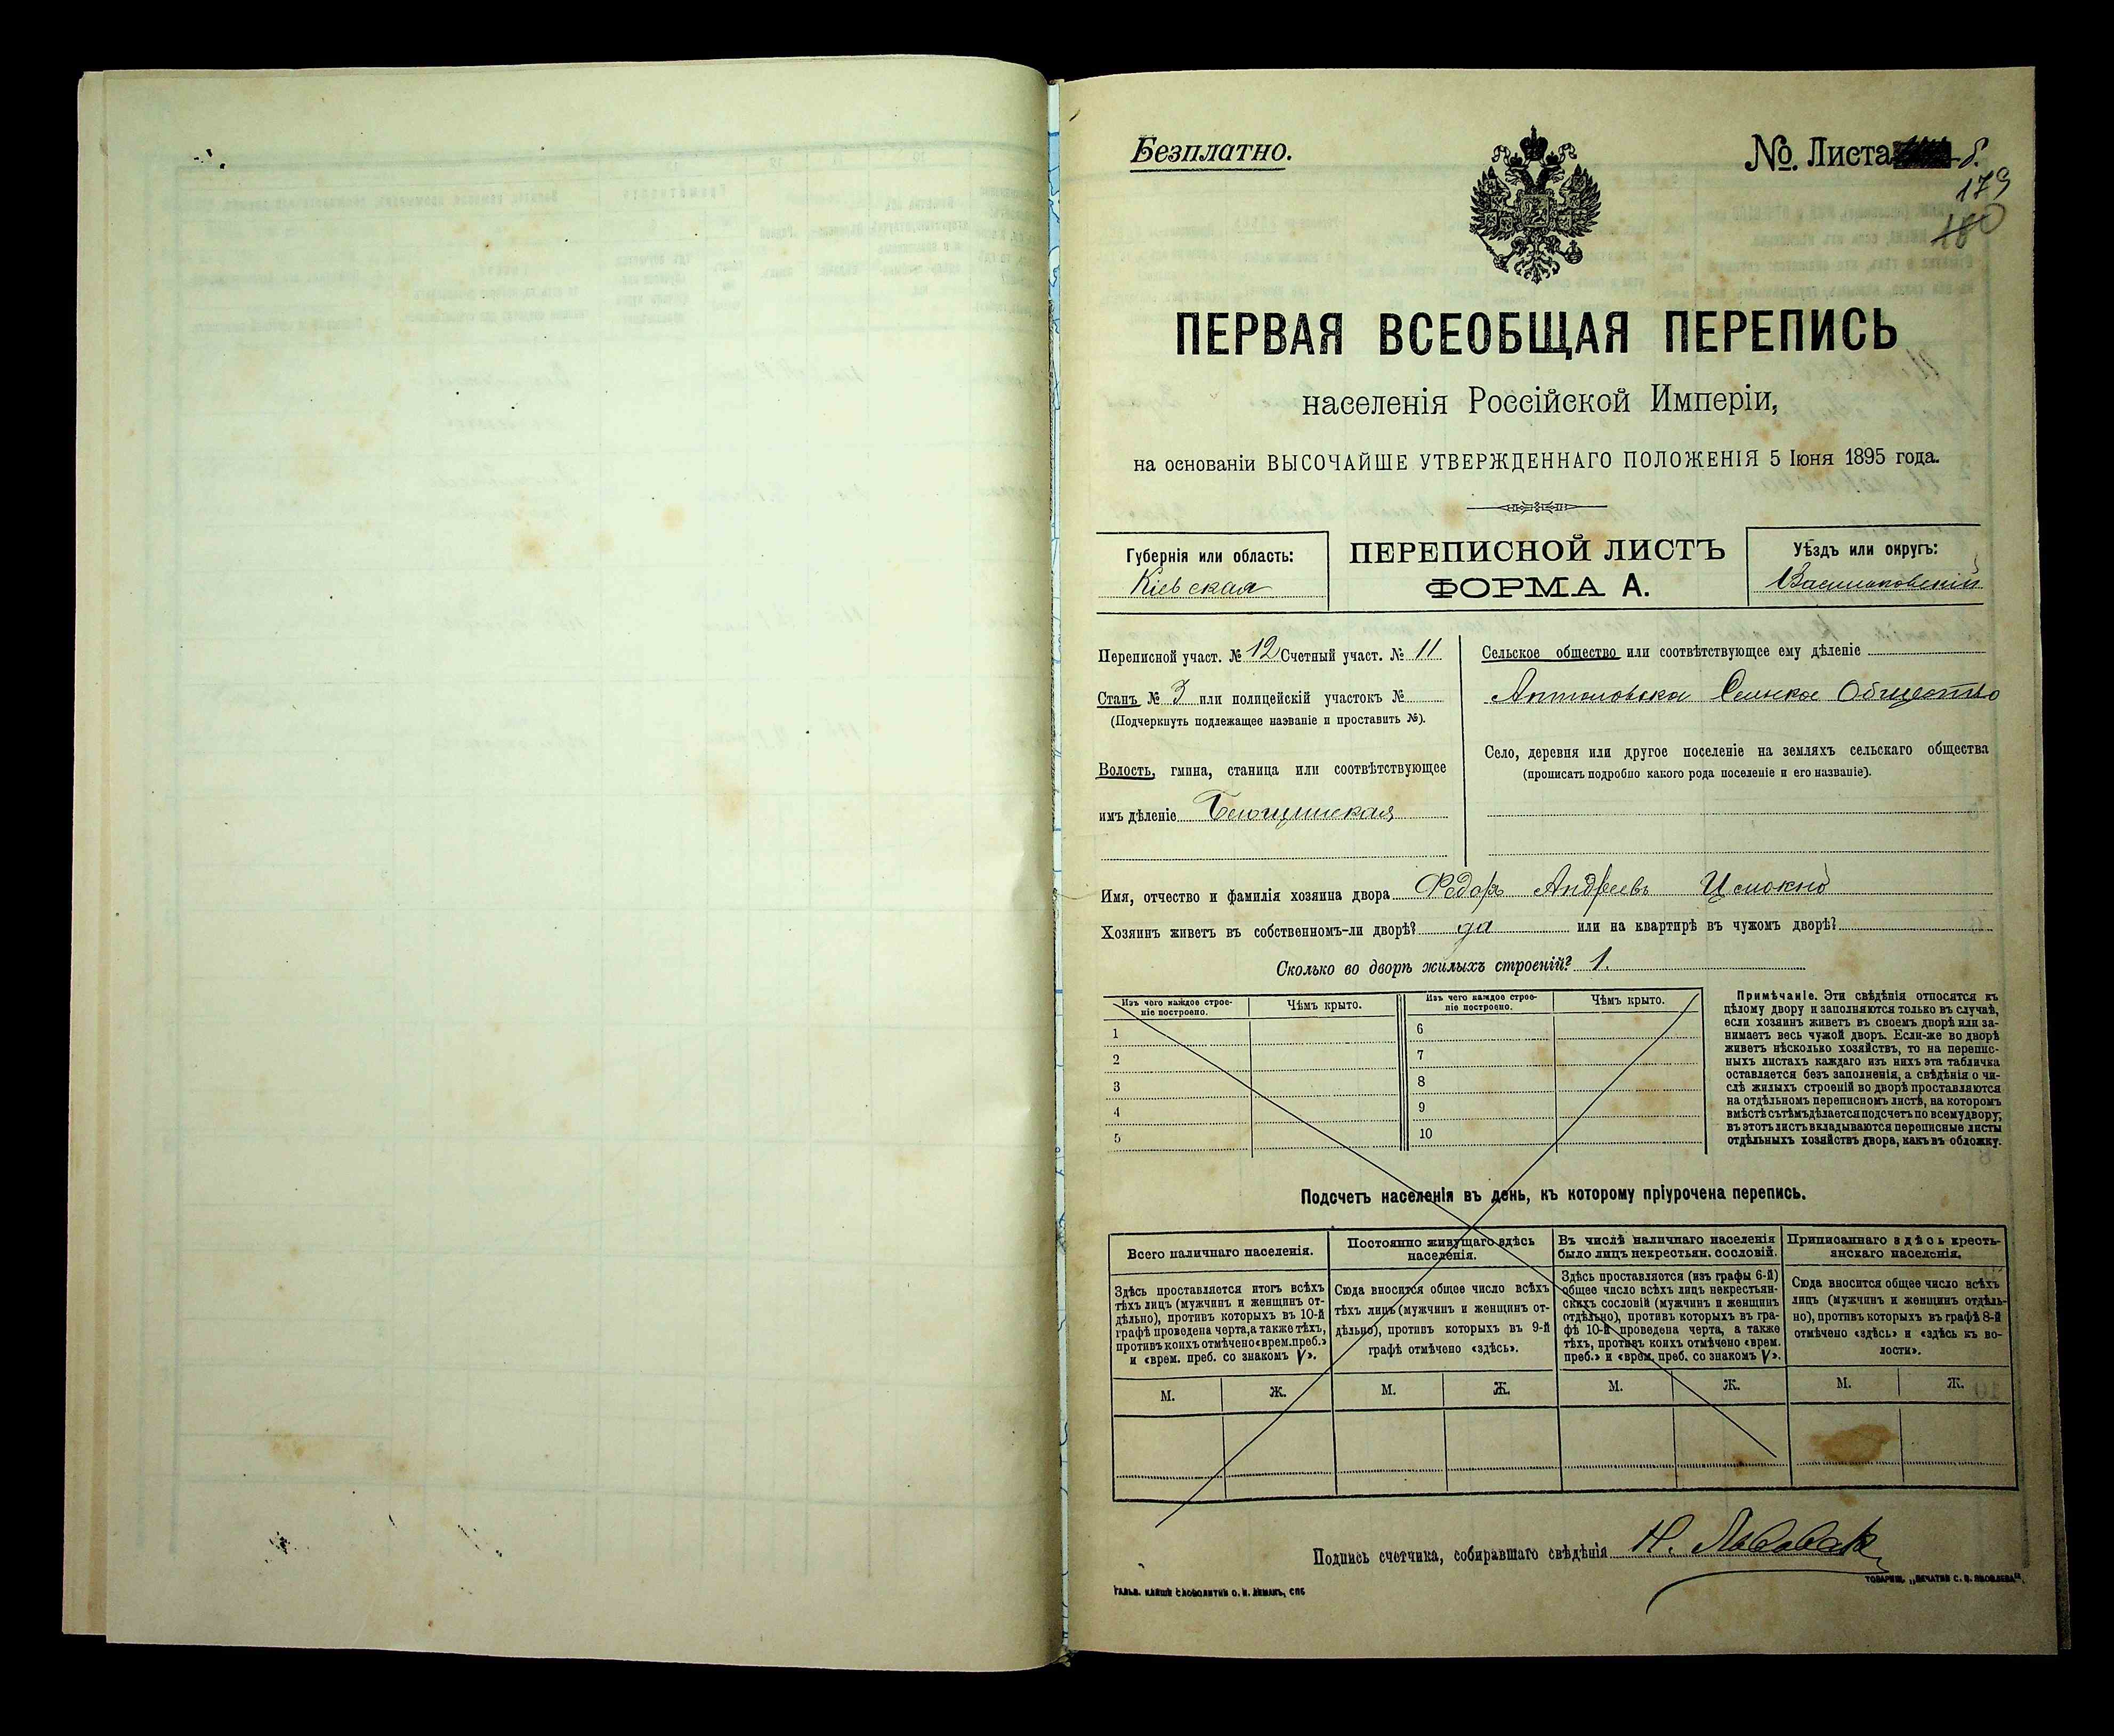 Безплатно.
№ Листа б.
179
180
ПЕРВАЯ ВСЕОБЩАЯ ПЕРЕПИСЬ
населенія Россійской Имперіи,
на основаніи ВЫСОЧАЙШЕ УТВЕРЖДЕННАГО ПОЛОЖЕНІЯ 5 Іюня 1895 года.
Губернія или область:
Кіевская
ПЕРЕПИСНОЙ ЛИСТЪ
ФОРМА А.
Уѣздъ или округъ:
Васильковскій
Переписной участ. № 12 Счетный участ. № 11
Станъ № 3 или полицейскій участокъ №
(Подчеркнуть подлежащее названіе и проставить №).
Волость, гмина, станица или соотвѣтствующее
имъ дѣленіе
Сельское общество или соотвѣтствующее ему дѣленіе
Сельское Общество
Село, деревня или другое поселеніе на земляхъ сельскаго общества
(прописать подробно какого рода поселеніе и его названіе).
Имя, отчество и фамилія хозяина двора Федоръ Андреевъ
Хозяинъ живетъ въ собственномъ-ли дворѣ? да или на квартирѣ въ чужомъ дворѣ?
Сколько во дворѣ жилыхъ строеній? 1.
Изъ чего каждое строе-
ніе построено.
Чѣмъ крыто.
1
2
3
4
5
Изъ чего каждое строе-
ніе построено.
Чѣмъ крыто.
6
7
8
9
10
Примѣчаніе. Эти свѣдѣнія относятся къ
цѣлому двору и заполняются только въ случаѣ,
если хозяинъ живетъ въ своемъ дворѣ или за-
нимаетъ весь чужой дворъ. Если-же во дворѣ
живетъ нѣсколько хозяйствъ, то на перепис-
ныхъ листахъ каждаго изъ нихъ эта табличка
оставляется безъ заполненія, а свѣдѣнія о чи-
слѣ жилыхъ строеній во дворѣ проставляются
на отдѣльномъ переписномъ листѣ, на которомъ
вмѣстѣ съ тѣмъ дѣлается подсчетъ по всему двору;
въ этотъ листъ вкладываются переписные листы
отдѣльныхъ хозяйствъ двора, какъ въ обложку.
Подсчетъ населенія въ день, къ которому пріурочена перепись.
Всего наличнаго населенія.
Здѣсь проставляется итогъ всѣхъ
тѣхъ лицъ (мужчинъ и женщинъ от-
дѣльно), противъ которыхъ въ 10-й
графѣ проведена черта, а также тѣхъ,
противъ коихъ отмѣчено «врем. преб.»
и «врем. преб. со знакомъ V».
М. Ж.
Постоянно живущаго здѣсь
населенія.
Сюда вносится общее число всѣхъ
тѣхъ лицъ (мужчинъ и женщинъ от-
дѣльно), противъ которыхъ въ 9-й
графѣ отмѣчено «здѣсь».
М. Ж.
Въ числѣ наличнаго населенія
было лицъ некрестьян. сословій.
Здѣсь проставляется (изъ графы 6-й)
общее число всѣхъ лицъ некрестьян-
скихъ сословій (мужчинъ и женщинъ
отдѣльно), противъ которыхъ въ гра-
фѣ 10-й проведена черта, а также
тѣхъ, противъ коихъ отмѣчено «врем.
преб.» и «врем. преб. со знакомъ V».
М. Ж.
Приписаннаго здѣсь кресть-
янскаго населенія.
Сюда вносится общее число всѣхъ
лицъ (мужчинъ и женщинъ отдѣль-
но), противъ которыхъ въ графѣ 8-й
отмѣчено «здѣсь» и «здѣсь въ во-
лости».
М. Ж.
Подпись счетчика, собиравшаго свѣдѣнія Н.
ТОВАРИЩ. „ПЕЧАТНЯ С. П. ЯКОВЛЕВА“.